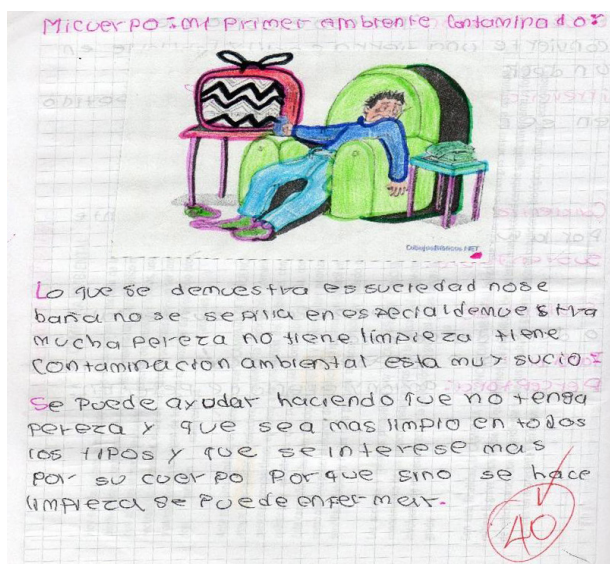 Mi cuerpo: mi primer ambiente contaminado:
DibujosBiblicos.NET
Lo que se demuestra es suciedad nose
baña no se sepilla en especial demuestra
mucha pereza no tiene limpieza tiene
contaminacion ambiental esta muy sucio:
Se puede ayudar haciendo que no tenga
pereza y que sea mas limpio en todos
los tipos y que se interese mas
por su cuerpo porque sino se hace
limpieza se puede enfermar.
40